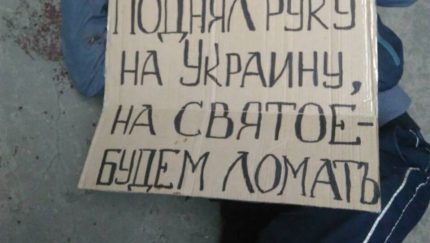 ПОДНЯЛ РУКУ
НА УКРАИНУ,
НА СВЯТОЕ-
БУДЕМ ЛОМАТЬ